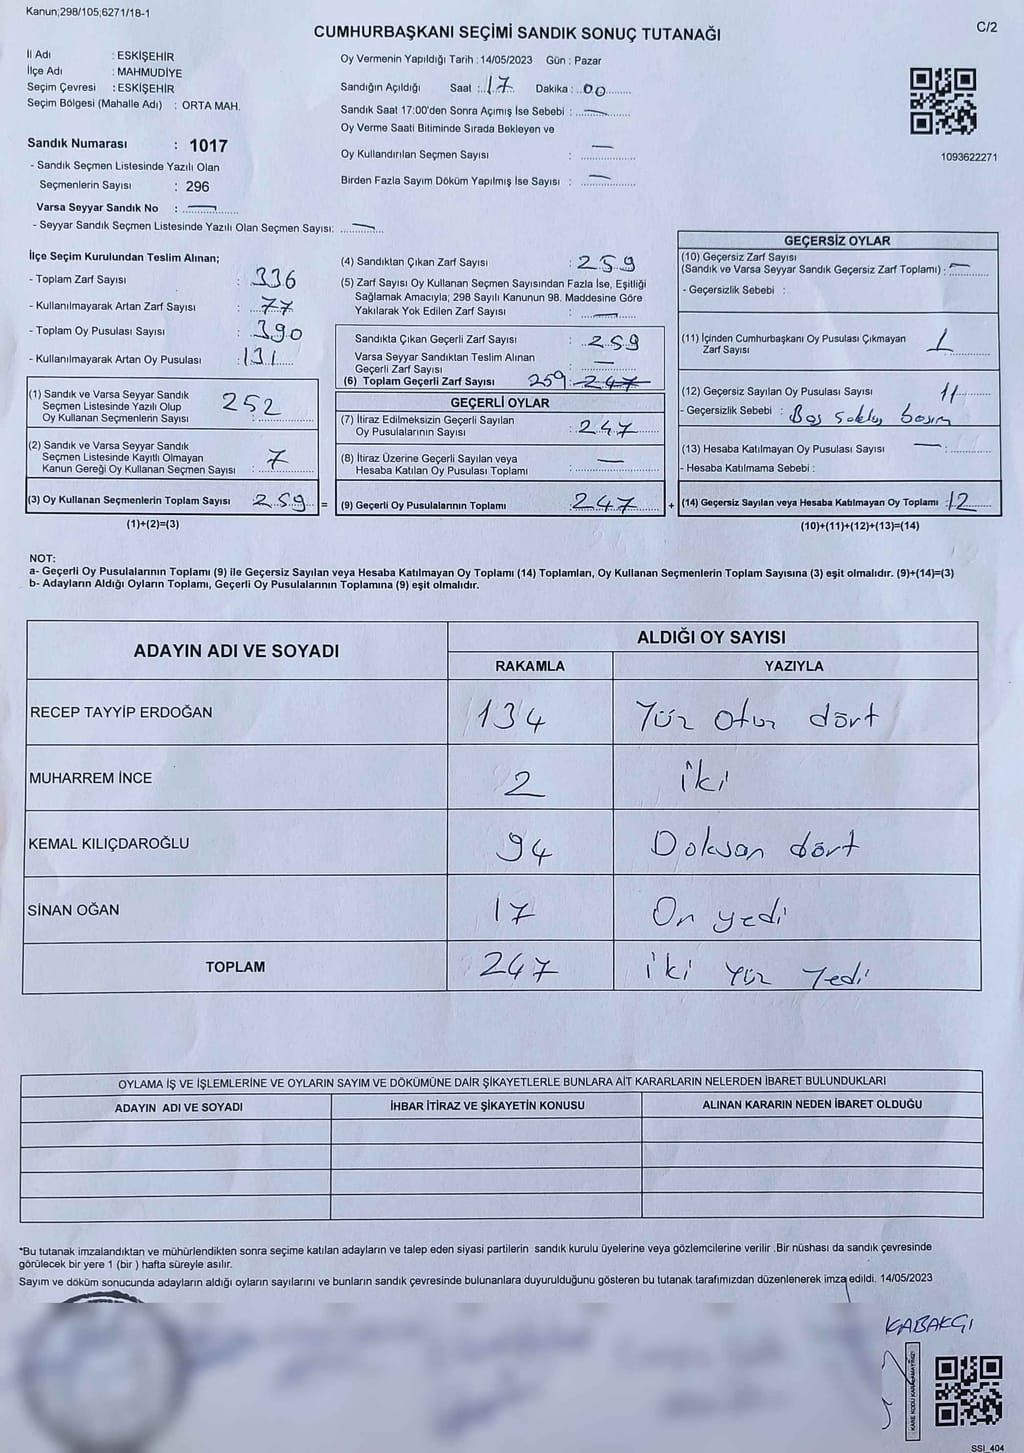 Kanun;298/105;6271/18-1
C/2
CUMHURBAŞKANI SEÇİMİ SANDIK SONUÇ TUTANAĞI
İl Adı : ESKİŞEHİR
İlçe Adı : MAHMUDİYE
Seçim Çevresi : ESKİŞEHİR
Seçim Bölgesi (Mahalle Adı) : ORTA MAH.
Sandık Numarası : 1017
- Sandık Seçmen Listesinde Yazılı Olan
Seçmenlerin Sayısı : 296
Varsa Seyyar Sandık No : —
- Seyyar Sandık Seçmen Listesinde Yazılı Olan Seçmen Sayısı: —
Oy Vermenin Yapıldığı Tarih : 14/05/2023 Gün : Pazar
Sandığın Açıldığı Saat : 17 Dakika : 00
Sandık Saat 17:00'den Sonra Açımış İse Sebebi : —
Oy Verme Saati Bitiminde Sırada Bekleyen ve
Oy Kullandırılan Seçmen Sayısı : —
Birden Fazla Sayım Döküm Yapılmış İse Sayısı : —
1093622271
İlçe Seçim Kurulundan Teslim Alınan;
- Toplam Zarf Sayısı : 336
- Kullanılmayarak Artan Zarf Sayısı : 77
- Toplam Oy Pusulası Sayısı : 390
- Kullanılmayarak Artan Oy Pusulası : 131
(1) Sandık ve Varsa Seyyar Sandık
Seçmen Listesinde Yazılı Olup
Oy Kullanan Seçmenlerin Sayısı : 252
(2) Sandık ve Varsa Seyyar Sandık
Seçmen Listesinde Kayıtlı Olmayan
Kanun Gereği Oy Kullanan Seçmen Sayısı : 7
(3) Oy Kullanan Seçmenlerin Toplam Sayısı 259 =
(1)+(2)=(3)
(4) Sandıktan Çıkan Zarf Sayısı : 259
(5) Zarf Sayısı Oy Kullanan Seçmen Sayısından Fazla İse, Eşitliği
Sağlamak Amacıyla; 298 Sayılı Kanunun 98. Maddesine Göre
Yakılarak Yok Edilen Zarf Sayısı : —
Sandıkta Çıkan Geçerli Zarf Sayısı : 259
Varsa Seyyar Sandıktan Teslim Alınan
Geçerli Zarf Sayısı : —
(6) Toplam Geçerli Zarf Sayısı 259 : 247
GEÇERLİ OYLAR
(7) İtiraz Edilmeksizin Geçerli Sayılan
Oy Pusulalarının Sayısı : 247
(8) İtiraz Üzerine Geçerli Sayılan veya
Hesaba Katılan Oy Pusulası Toplamı : —
(9) Geçerli Oy Pusulalarının Toplamı : 247 +
GEÇERSİZ OYLAR
(10) Geçersiz Zarf Sayısı
(Sandık ve Varsa Seyyar Sandık Geçersiz Zarf Toplamı) : —
- Geçersizlik Sebebi :
(11) İçinden Cumhurbaşkanı Oy Pusulası Çıkmayan
Zarf Sayısı : 1
(12) Geçersiz Sayılan Oy Pusulası Sayısı : 11
- Geçersizlik Sebebi : Boş
(13) Hesaba Katılmayan Oy Pusulası Sayısı — :
- Hesaba Katılmama Sebebi :
(14) Geçersiz Sayılan veya Hesaba Katılmayan Oy Toplamı : 12
(10)+(11)+(12)+(13)=(14)
NOT:
a- Geçerli Oy Pusulalarının Toplamı (9) ile Geçersiz Sayılan veya Hesaba Katılmayan Oy Toplamı (14) Toplamları, Oy Kullanan Seçmenlerin Toplam Sayısına (3) eşit olmalıdır. (9)+(14)=(3)
b- Adayların Aldığı Oyların Toplamı, Geçerli Oy Pusulalarının Toplamına (9) eşit olmalıdır.
ADAYIN ADI VE SOYADI
ALDIĞI OY SAYISI
RAKAMLA YAZIYLA
RECEP TAYYİP ERDOĞAN 134 Yüz Otuz dört
MUHARREM İNCE 2 iki
KEMAL KILIÇDAROĞLU 94 Doksan dört
SİNAN OĞAN 17 On yedi
TOPLAM 247 iki Yüz Yedi
OYLAMA İŞ VE İŞLEMLERİNE VE OYLARIN SAYIM VE DÖKÜMÜNE DAİR ŞİKAYETLERLE BUNLARA AİT KARARLARIN NELERDEN İBARET BULUNDUKLARI
ADAYIN ADI VE SOYADI İHBAR İTİRAZ VE ŞİKAYETİN KONUSU ALINAN KARARIN NEDEN İBARET OLDUĞU
*Bu tutanak imzalandıktan ve mühürlendikten sonra seçime katılan adayların ve talep eden siyasi partilerin sandık kurulu üyelerine veya gözlemcilerine verilir .Bir nüshası da sandık çevresinde
görülecek bir yere 1 (bir ) hafta süreyle asılır.
Sayım ve döküm sonucunda adayların aldığı oyların sayılarını ve bunların sandık çevresinde bulunanlara duyurulduğunu gösteren bu tutanak tarafımızdan düzenlenerek imza edildi. 14/05/2023
KABAKÇI
KARE KODU KARALAMAYINIZ!
SSI_404